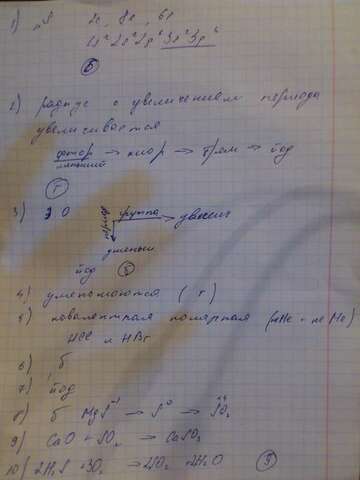 1) S 2e, 8e, 6e
1s² 2s² 2p⁶ 3s² 3p⁴
б
2) радиус с увеличением периода
увеличивается
фтор → хлор → бром → йод
Г
3) ЭО
период группа → увелич
уменьш
йод
4) уменьшаются (г)
5) ковалентная полярная (неMe + неMe)
HCl и HBr
6) б
7) йод
8) б MgS → S⁰ → SO₂
9) CaO + SO₂ → CaSO₃
10) 2H₂S + 3O₂ → 2SO₂ 2H₂O